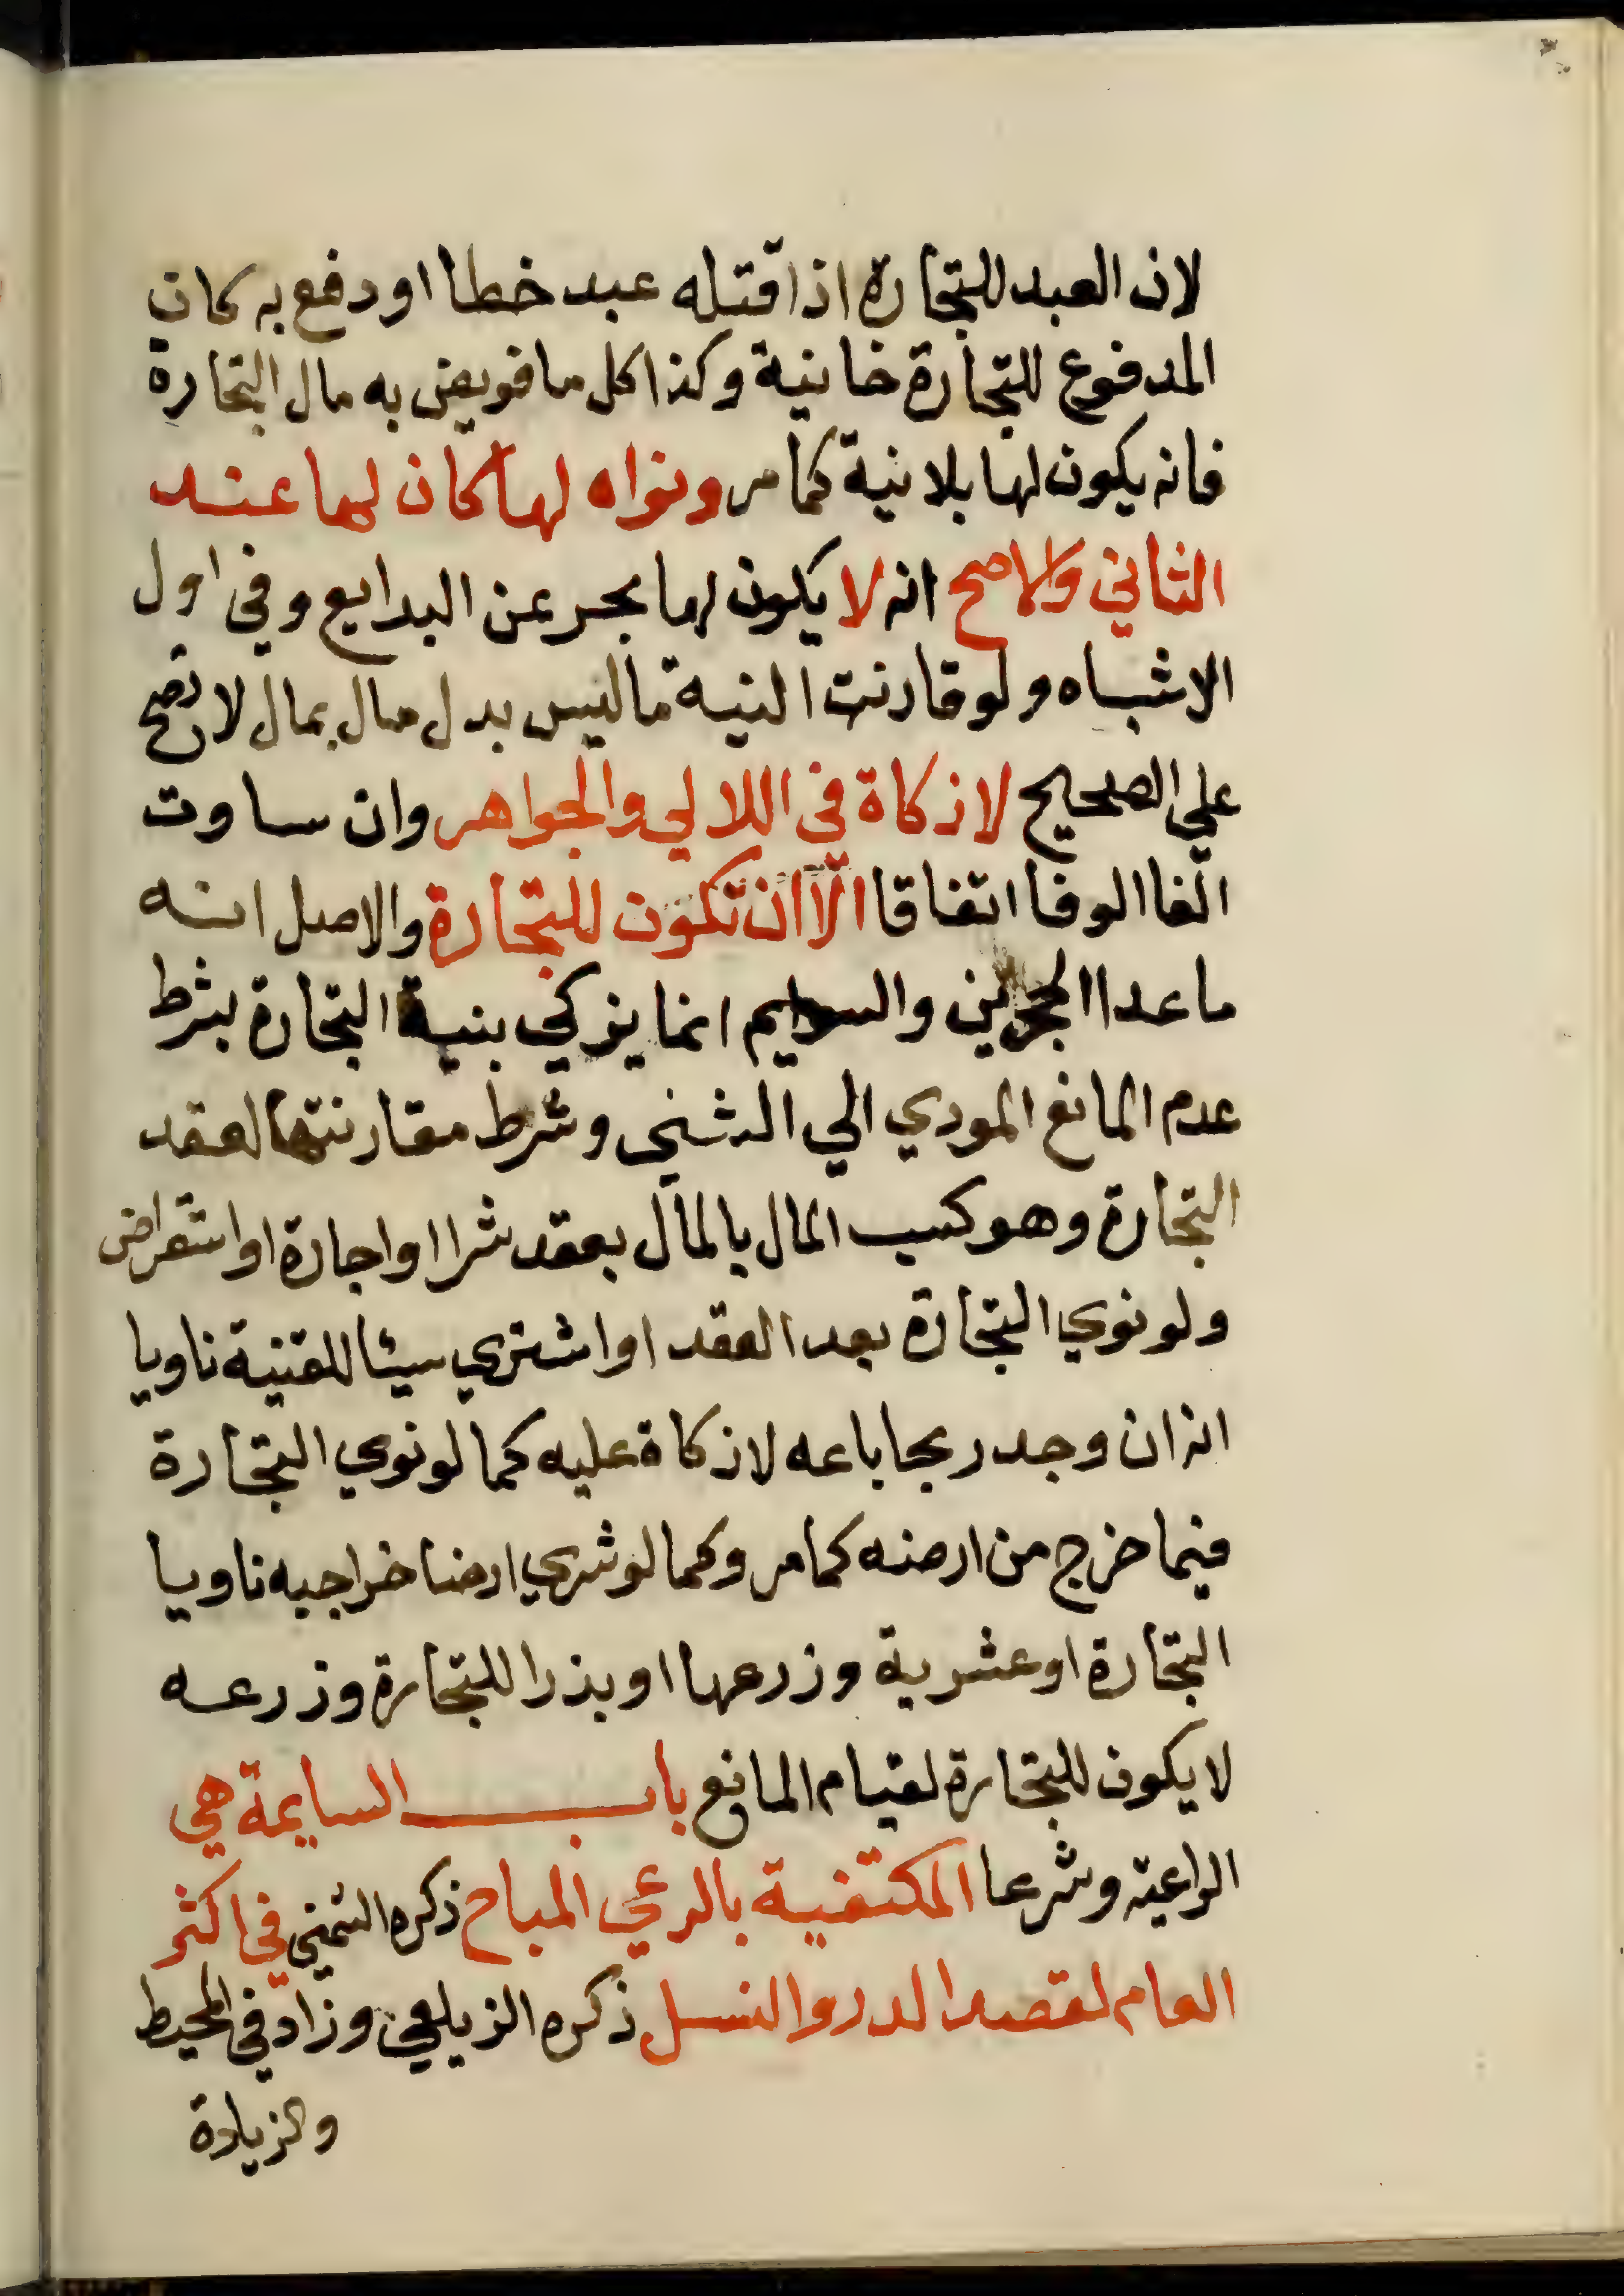 لان العبد للتجارة اذا قتله عبد خطا او دفع به كان
المدفوع للتجارة خانية وكذا كل ما قويض به مال التجارة
فانه يكون لها بلا نية كما مر ونواه لها كان لها عند
الثاني والاصح انه لا يكون لها بحر عن البدايع وفي اول
الاشباه ولو قارنت النية ما ليس بدل مال بمال لا تصح
علي الصحيح لا زكاة في اللالي والجواهر وان ساوت
الفا الوفا اتفاقا الا ان تكون للتجارة والاصل انه
ما عدا الحجرين والسوايم انما يزكي بنية التجارة بشرط
عدم المانع المودي الي الشني وشرط مقارنتها لعقد
التجارة وهو كسب المال بالمال بعقد شرا او اجارة او استقراض
ولو نوي التجارة بعد العقد او اشتري سيئا للقنية ناويا
انه ان وجد ربحا باعه لا زكاة عليه كما لو نوي التجارة
فيما خرج من ارضه كما مر وكما لو شري ارضا خراجيه ناويا
التجارة او عشرية وزرعها او بذرا للتجارة وزرعه
لا يكون للتجارة لقيام المانع باب السايمة هي
الراعية وشرعا المكتفية بالرعي المباح ذكره الشمني في اكثر
العام لقصد الدر والنسل ذكره الزيلعي وزاد في المحيط
والزيادة